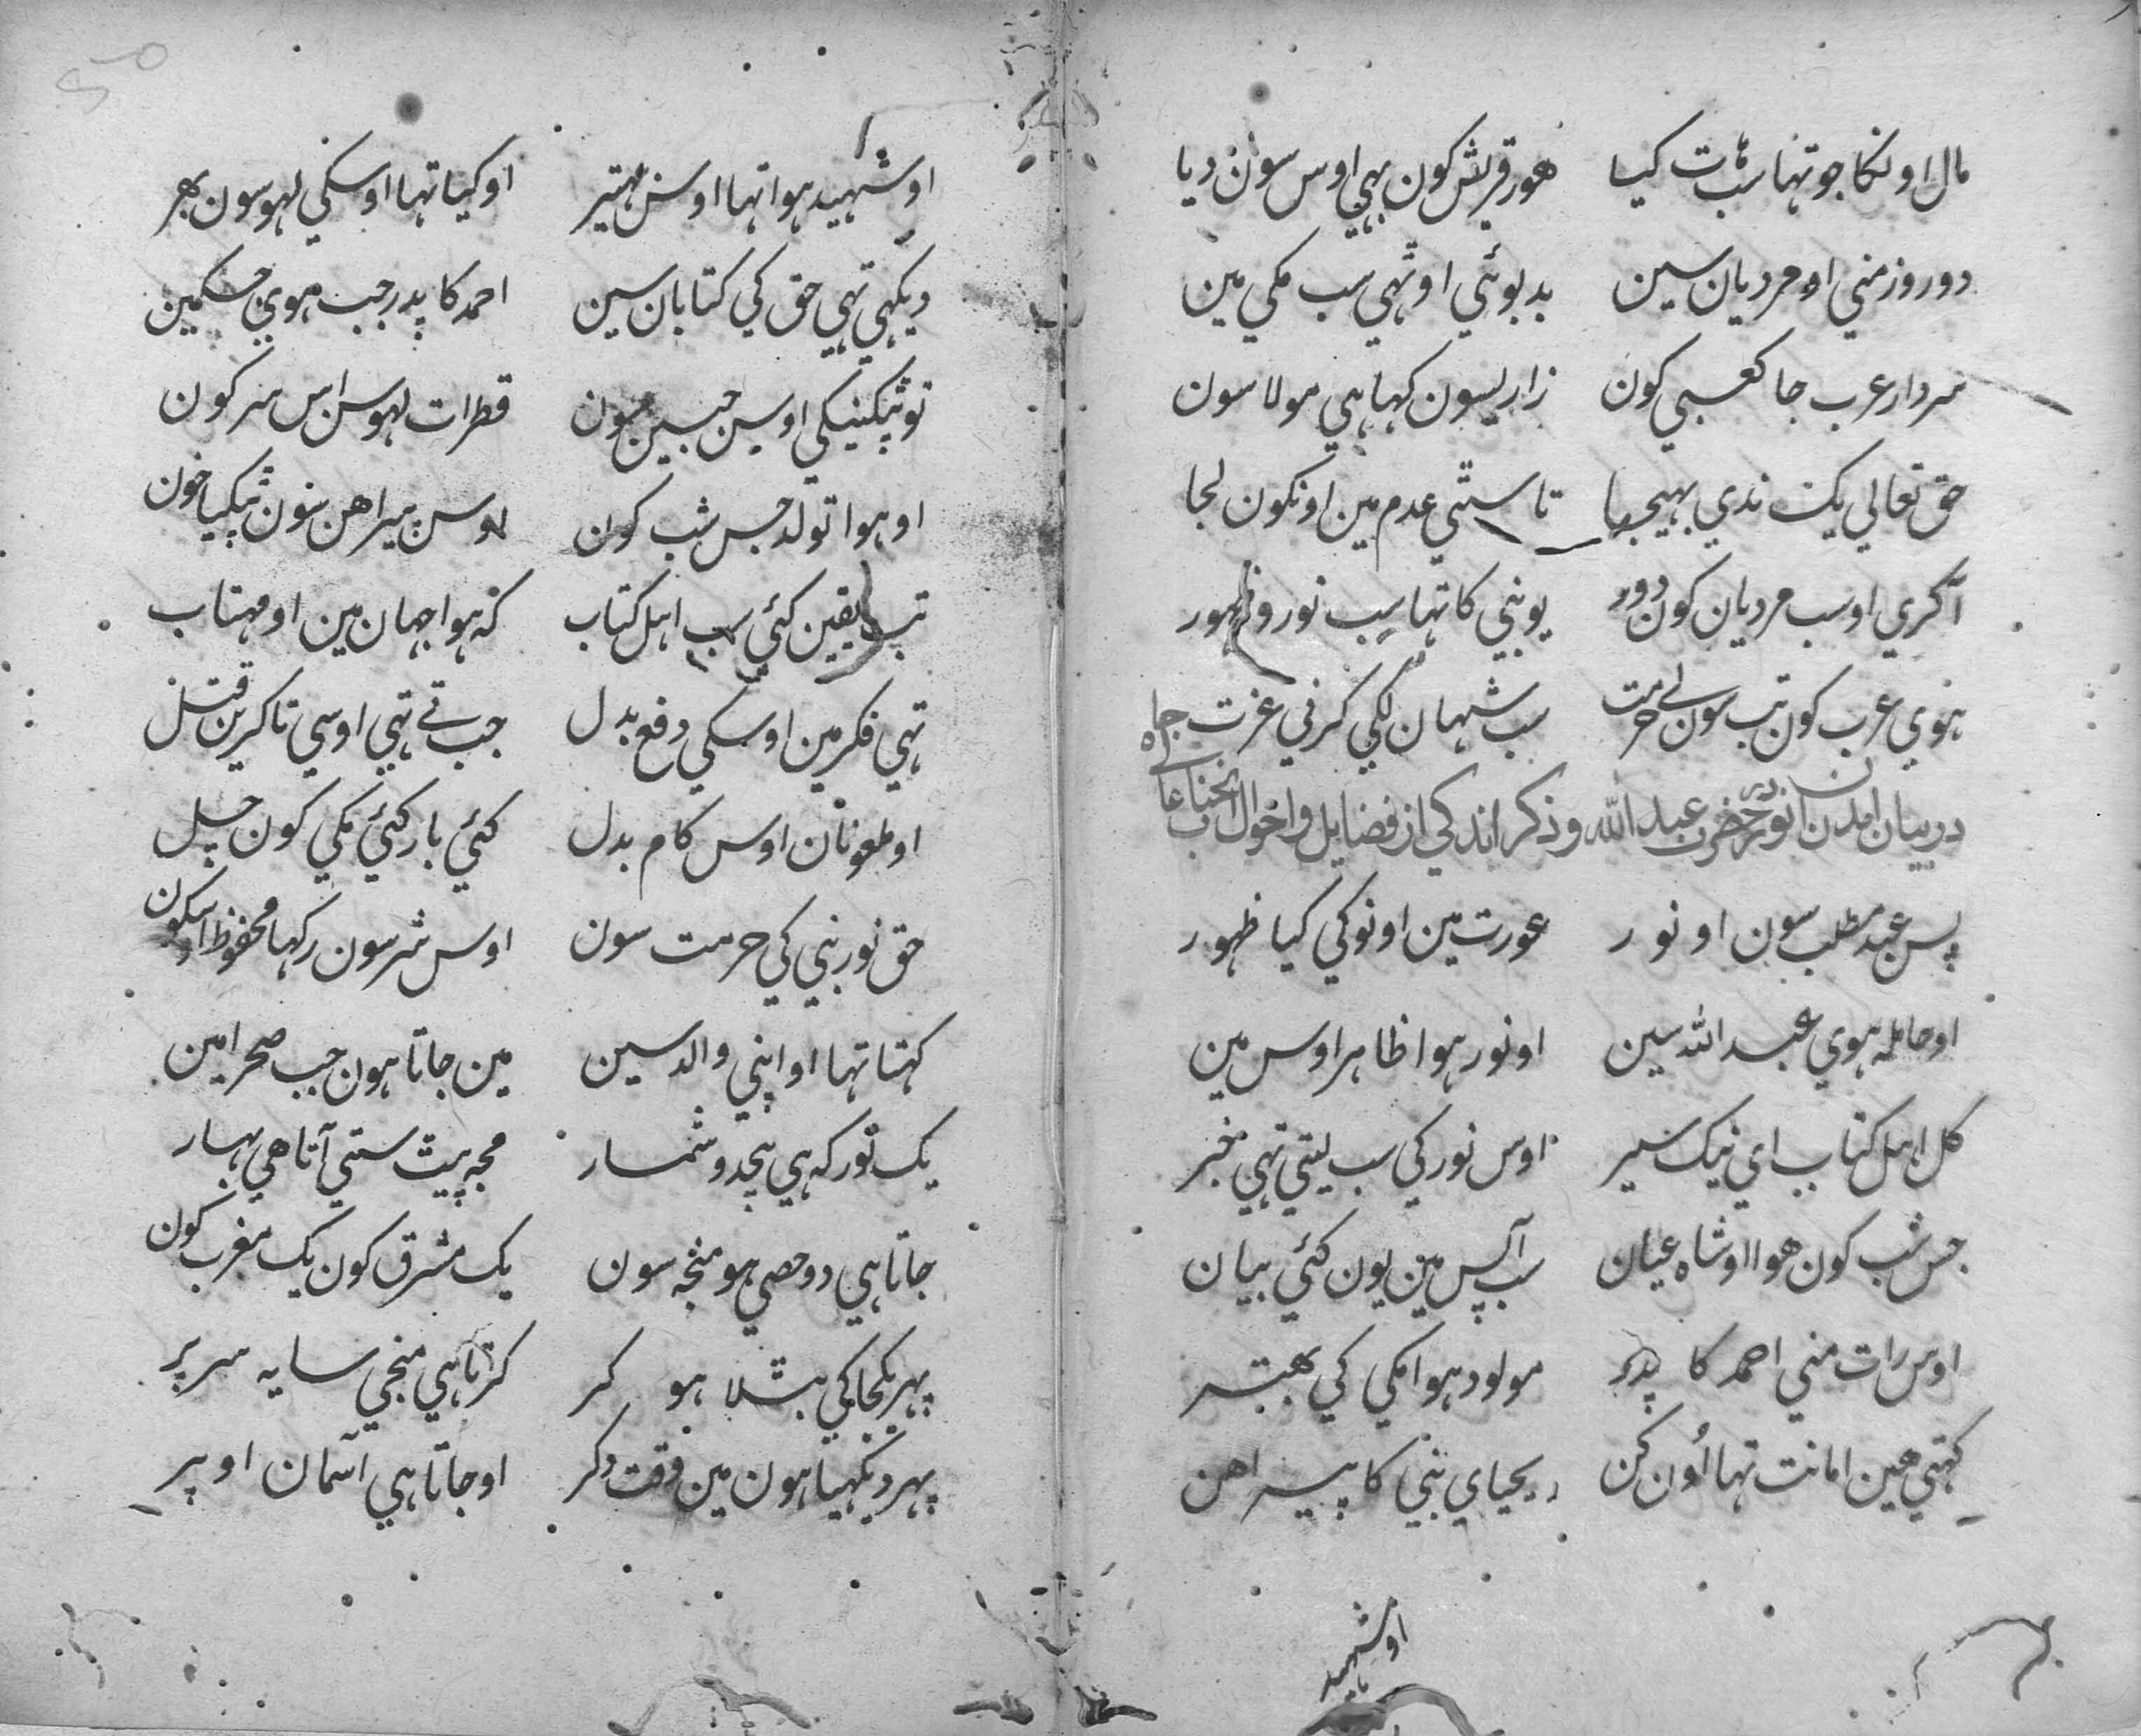 مال اونکا جو تہا سب ہات کیا هور قریش کون بہي اوس سون دیا
دو روز مني او مردیان سین بدبوئي اوٹهي سب مکي مین
سردار عرب جا کعبي کون زاریسون کہا هي مولا سون
حق تعالي یک ندي بہیجا تا ستي عدم مین اونکون لجا
کري او سب مردیان کون دور یو نبي کا تہا سب نور و ظہور
ہوي عرب کون تب سون حرمت سب شہان لگي کرني عزت
در بیان نور حضرت عبد الله و ذکر اندکي از فضایل و احوال آنجناب
پس عبد مطلب سون او نور عورت مین اونوکي کیا ظہور
او حامله ہوي عبد الله سین او نور ہوا ظاہر اوس مین
کل اہل کتاب اي نیک سیر اوس نور کي سب لیتي تہي خبر
جس شب کون هوا او شاه عیان سب آپس مین یون کئي بیان
اوس رات مني احمد کا پدر مولود ہوا مکي کي بهیتر
کہتي هین امانت تہا اُون کن یحیاي نبي کا پیراهن
اوشہید
او شہید ہوا تہا اوس بہیتر او کیا تہا اوسکي لہو سون بهر
دیکہي تہي حق کي کتابان سین احمد کا پدر جب ہوي جسکمین
تو ٹپکینکي اوس جبین سون قطرات لہو اس سر کون
او ہوا تولد جس شب کون اوس پیراهن سون ٹپکیا خون
تب یقین کئي سب اہل کتاب کہ ہوا جہان مین او مہتاب
تہي فکر مین اوسکي دفع بدل جپتے تہي اوسي تا کرین قتل
او ملعونان اوس کام بدل کئي بار کئي مکي کون چل
حق نور نبي کي حرمت سون اوس شر سون رکہا محفوظ اسکون
کہتا تہا او اپني والد سین مین جاتا ہون جب صحرا مین
یک نور کہ هي بیحد و شمار مجہ پیٹ ستي آتا هي بہار
جاتا هي دو حصي ہو منجہ سون یک مشرق کون یک مغرب کون
پہر یکجا کي ہو کر کرتا هي منجي سایہ سر پر
پہر دیکہیا ہون مین وقت دکر او جاتا هي آسمان اوپر